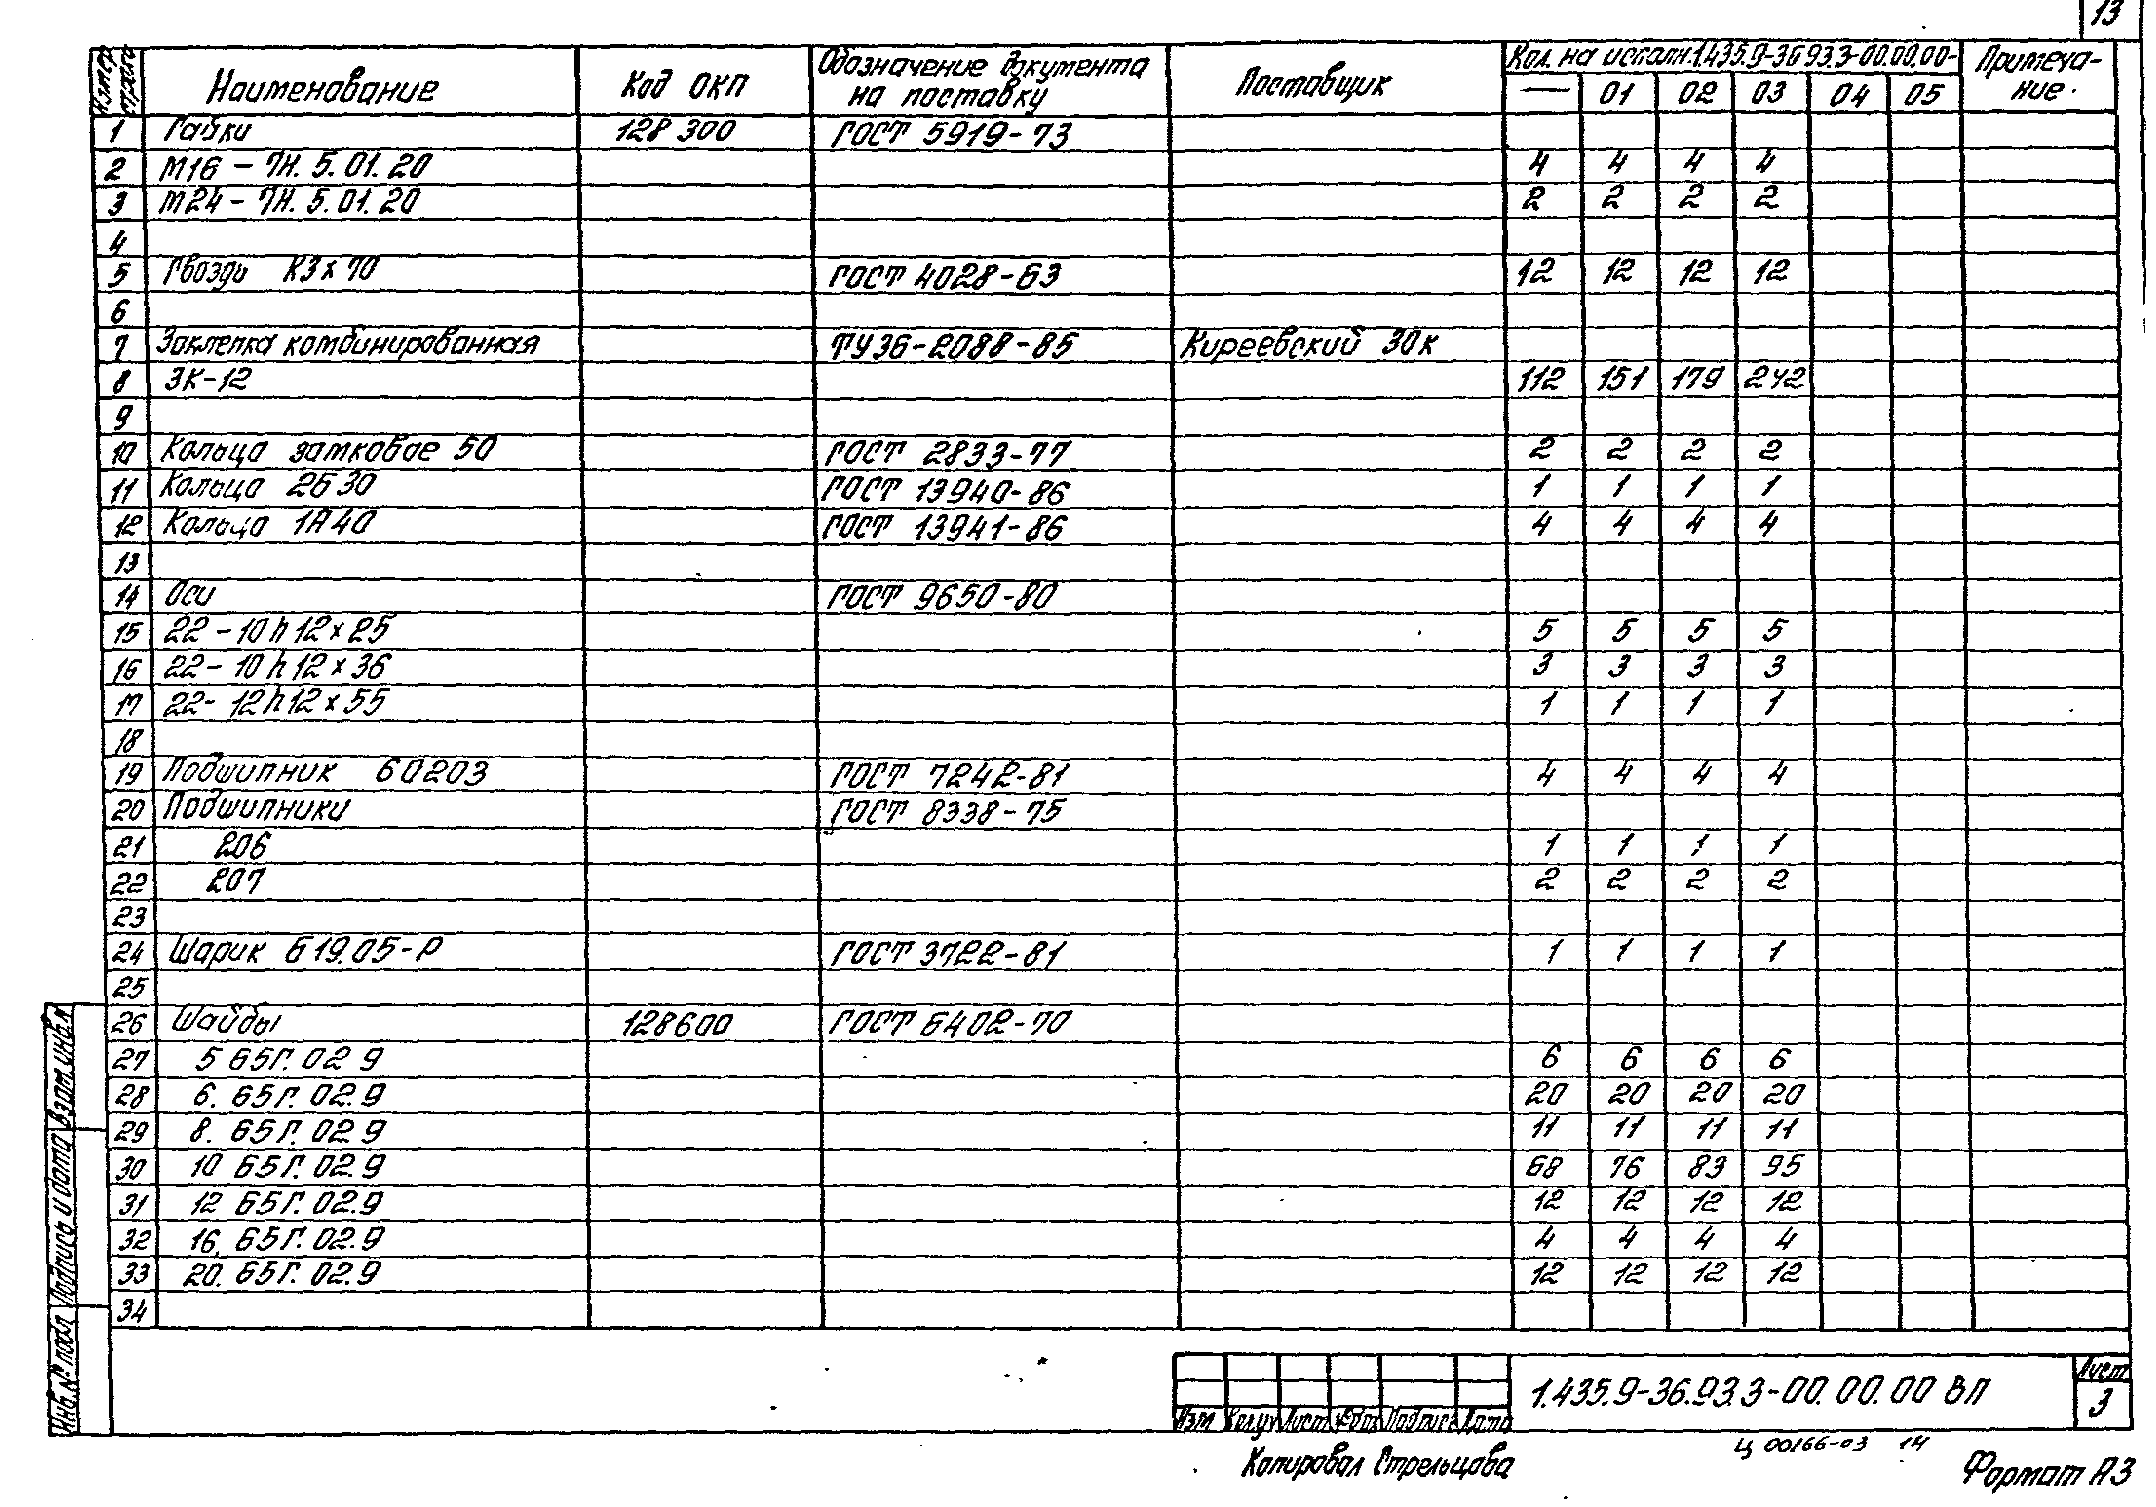 13
Номер строки Наименование Код ОКП Обозначение документа на поставку Поставщик Кол. на исполн. 1.435.9-36.93.3-00.00.00- Примечание
— 01 02 03 04 05
1 Гайки 128300 ГОСТ 5919-73
2 М16-7Н.5.01.20 4 4 4 4
3 М24-7Н.5.01.20 2 2 2 2
4
5 Гвоздь К3х70 ГОСТ 4028-63 12 12 12 12
6
7 Заклепка комбинированная ТУ36-2088-85 Киреевский ЗОК
8 ЗК-12 112 151 179 242
9
10 Кольцо замковое 50 ГОСТ 2833-77 2 2 2 2
11 Кольцо 2Б30 ГОСТ 13940-86 1 1 1 1
12 Кольцо 1А40 ГОСТ 13941-86 4 4 4 4
13
14 Оси ГОСТ 9650-80
15 22-10h12х25 5 5 5 5
16 22-10h12х36 3 3 3 3
17 22-12h12х55 1 1 1 1
18
19 Подшипник 60203 ГОСТ 7242-81 4 4 4 4
20 Подшипники ГОСТ 8338-75
21 206 1 1 1 1
22 207 2 2 2 2
23
24 Шарик Б19.05-Р ГОСТ 3722-81 1 1 1 1
25
26 Шайбы 128600 ГОСТ 6402-70
27 5 65Г.02 9 6 6 6 6
28 6. 65Г.02.9 20 20 20 20
29 8. 65Г.02 9 11 11 11 11
30 10 65Г.02.9 68 76 83 95
31 12 65Г.02.9 12 12 12 12
32 16. 65Г.02.9 4 4 4 4
33 20. 65Г.02.9 12 12 12 12
34
Взам.инв.№
Подпись и дата
Инв.№ подл
Изм Кол.уч Лист №док Подпись Дата
1.435.9-36.93.3-00.00.00 ВП
Лист
3
Ц 00166-03 14
Копировал Стрельцова
Формат А3